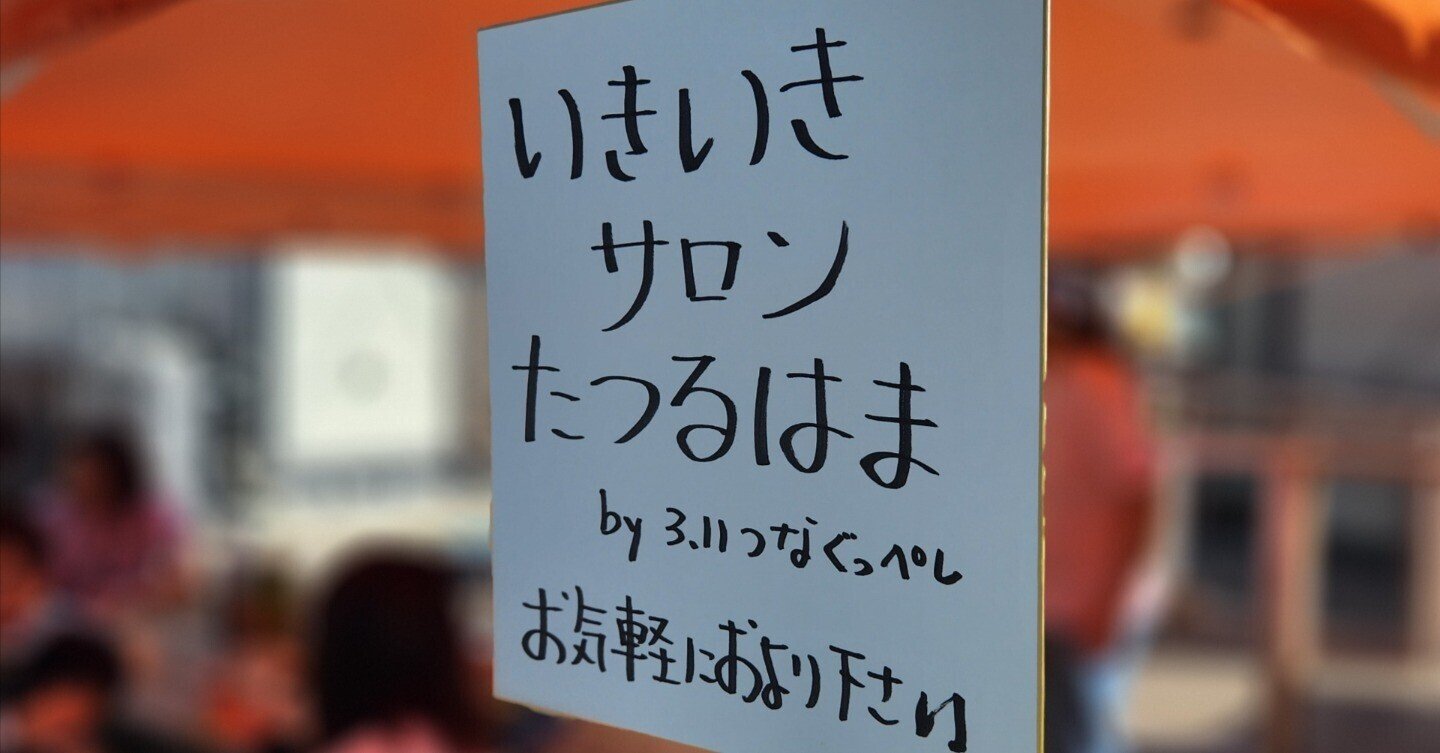 いきいき
サロン
たつるはま
by 3.11つなぐっぺし
お気軽におより下さい